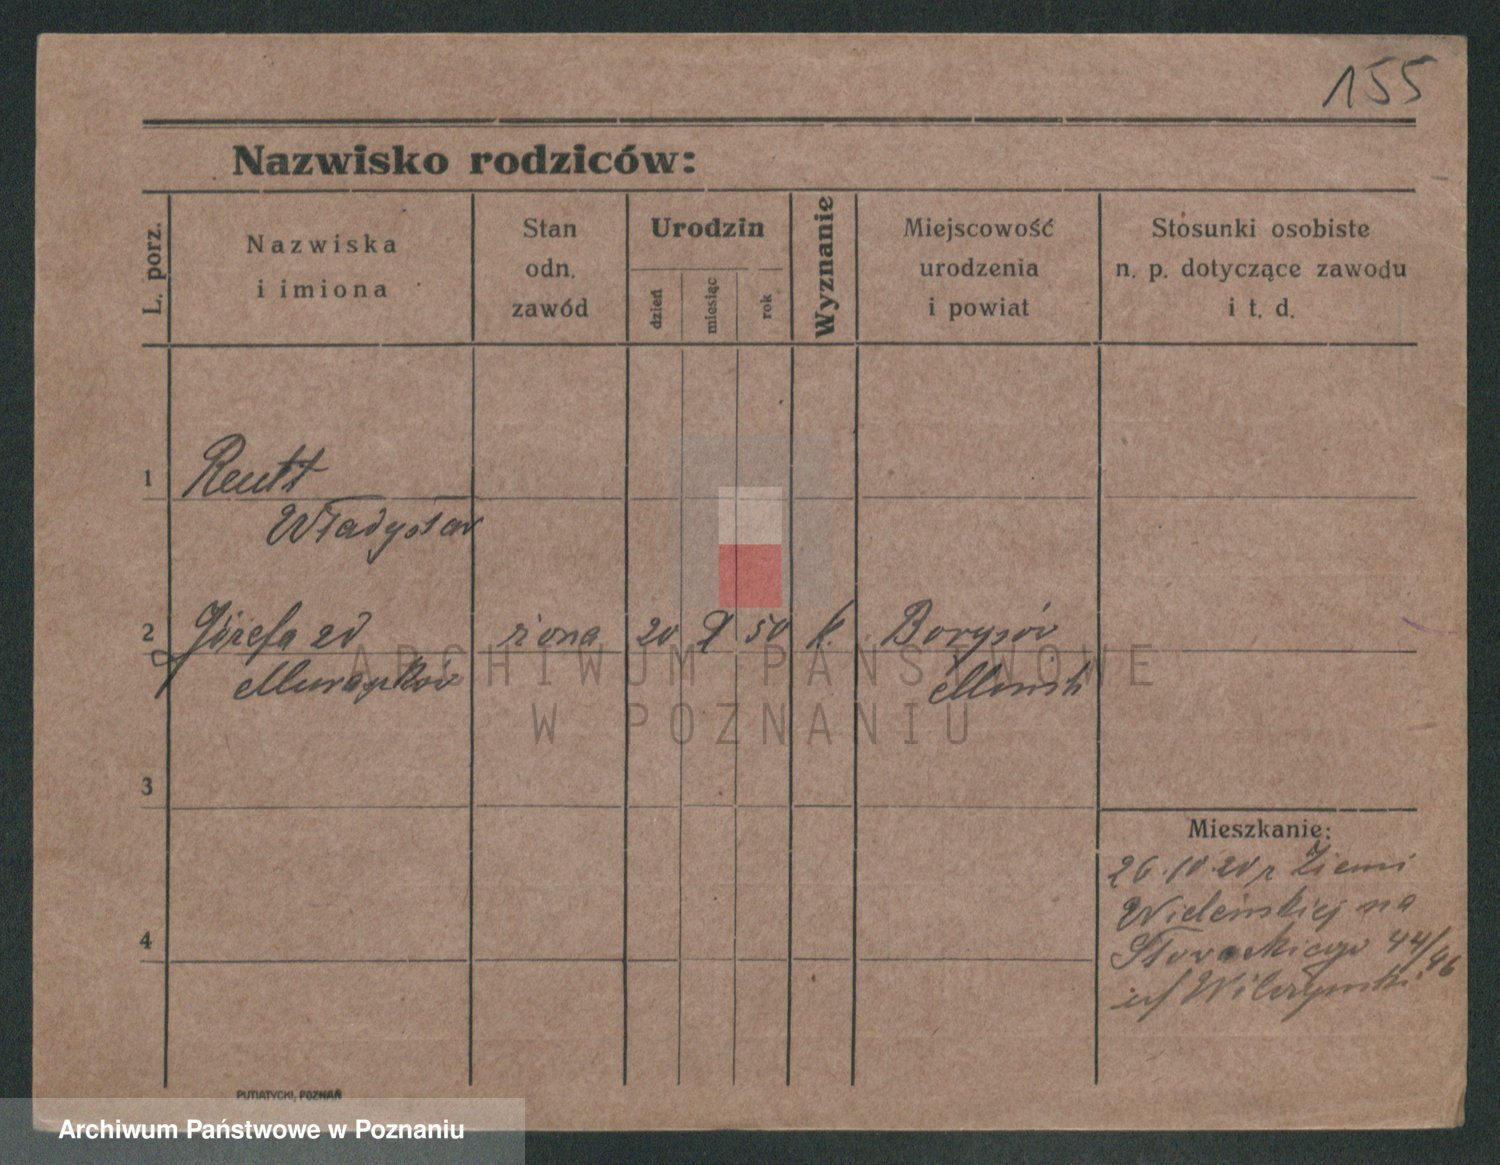 155
Nazwisko rodziców:
L. porz.
Nazwiska
i imiona
Stan
odn.
zawód
Urodzin
dzień
miesiąc
rok
Wyznanie
Miejscowość
urodzenia
i powiat
Stosunki osobiste
n. p. dotyczące zawodu
i t. d.
1 Reutt
Władysław
2 Józefa zd żona 20 2 50 k. Borysów
Mińsk
3
Mieszkanie:
26.10.20 z Ziemi
Wileńskiej na
4
Słowackiego 44/46
ARCHIWUM PAŃSTWOWE
W POZNANIU
PUTIATYCKI, POZNAŃ
Archiwum Państwowe w Poznaniu